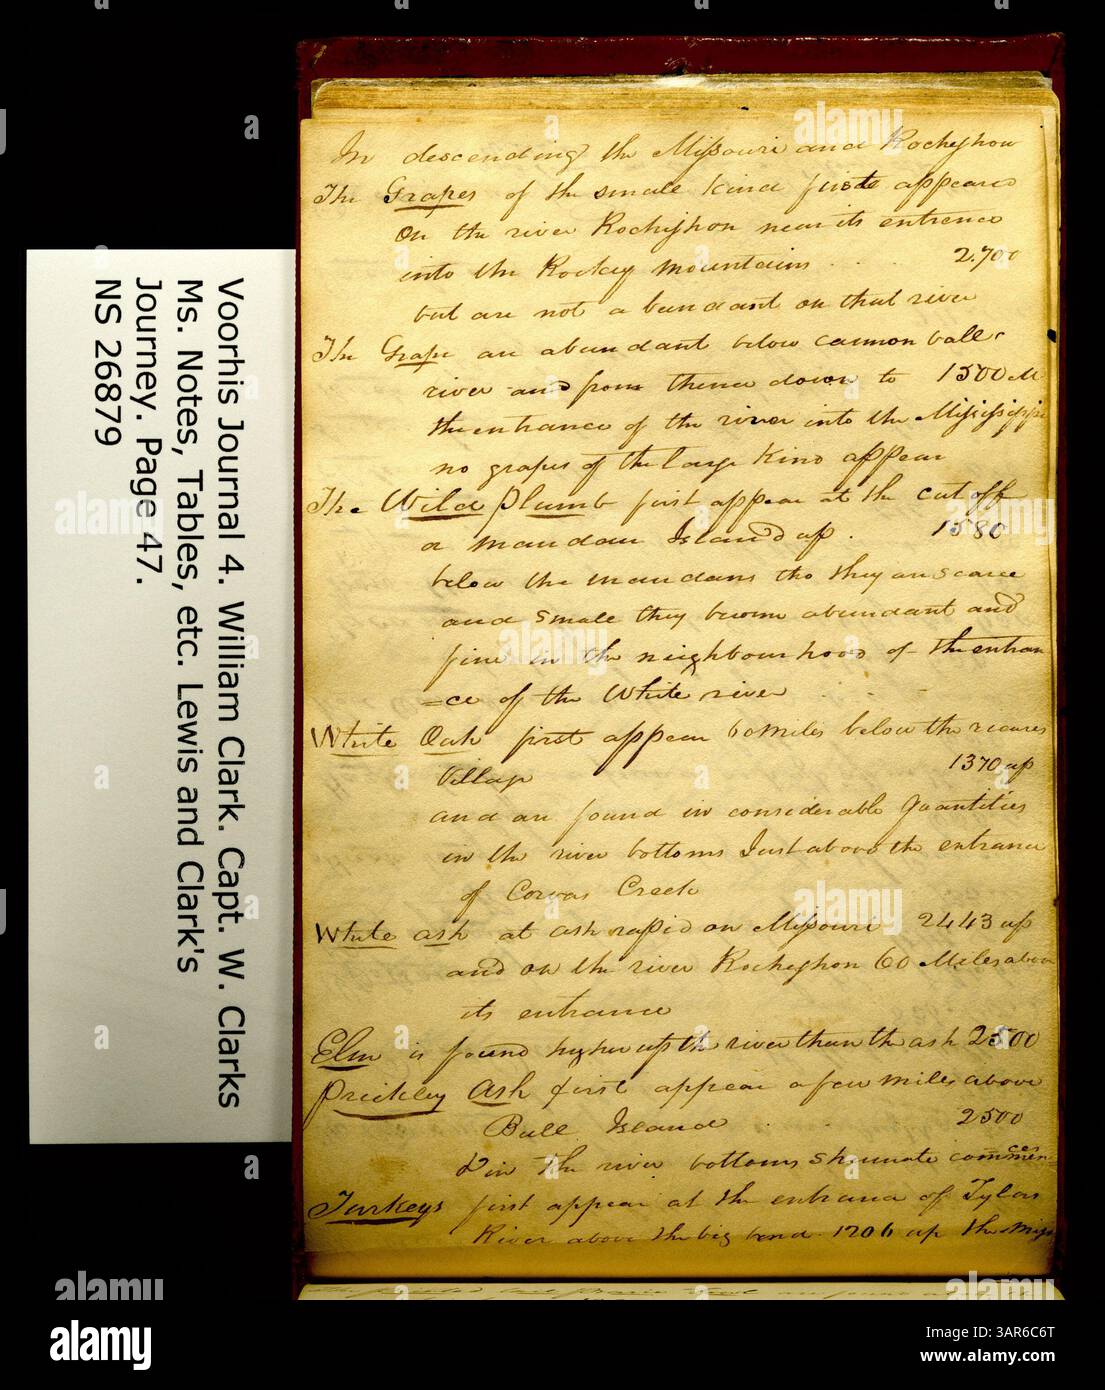 In descending the Missouri and Rochejhon
The Grapes of the small kind firste appears
on the river Rochejhon near its entrence
into the Rockey mountains . . . 2.700
but are not abundant on that river
The Grape are abundant below cannon ball
river and from thence down to 1500 M
the entrance of the river into the Missisippi
no grapes of the large Kind appear
The Wild Plumb first appear at the cut off
or mandan Island up. 1580
below the mandans tho they are scarce
and small they become abundant and
fine in the neighbourhood of the entran
=ce of the White river
White Oak first appear 60 miles below the ricares
Village 1370 up
and are found in considerable quantities
in the river bottoms Just above the entrance
of Corvus Creek
White ash at ash rapid on Missouri 2443 up
and on the river Rochejhon 60 Miles above
its entrance
Elm is found higher up the river than the ash 2500
Prickley Ash first appear a few miles above
Bull Island . . 2500
& in the river bottoms shumate commences
Turkeys first appear at the entrance of Tylors
River above the big bend 1206 up the Miss
Voorhis Journal 4. William Clark. Capt. W. Clarks
Ms. Notes, Tables, etc. Lewis and Clark's
Journey. Page 47.
NS 26879
alamy
a
alamy
Image ID: 3AR6C6T
www.alamy.com